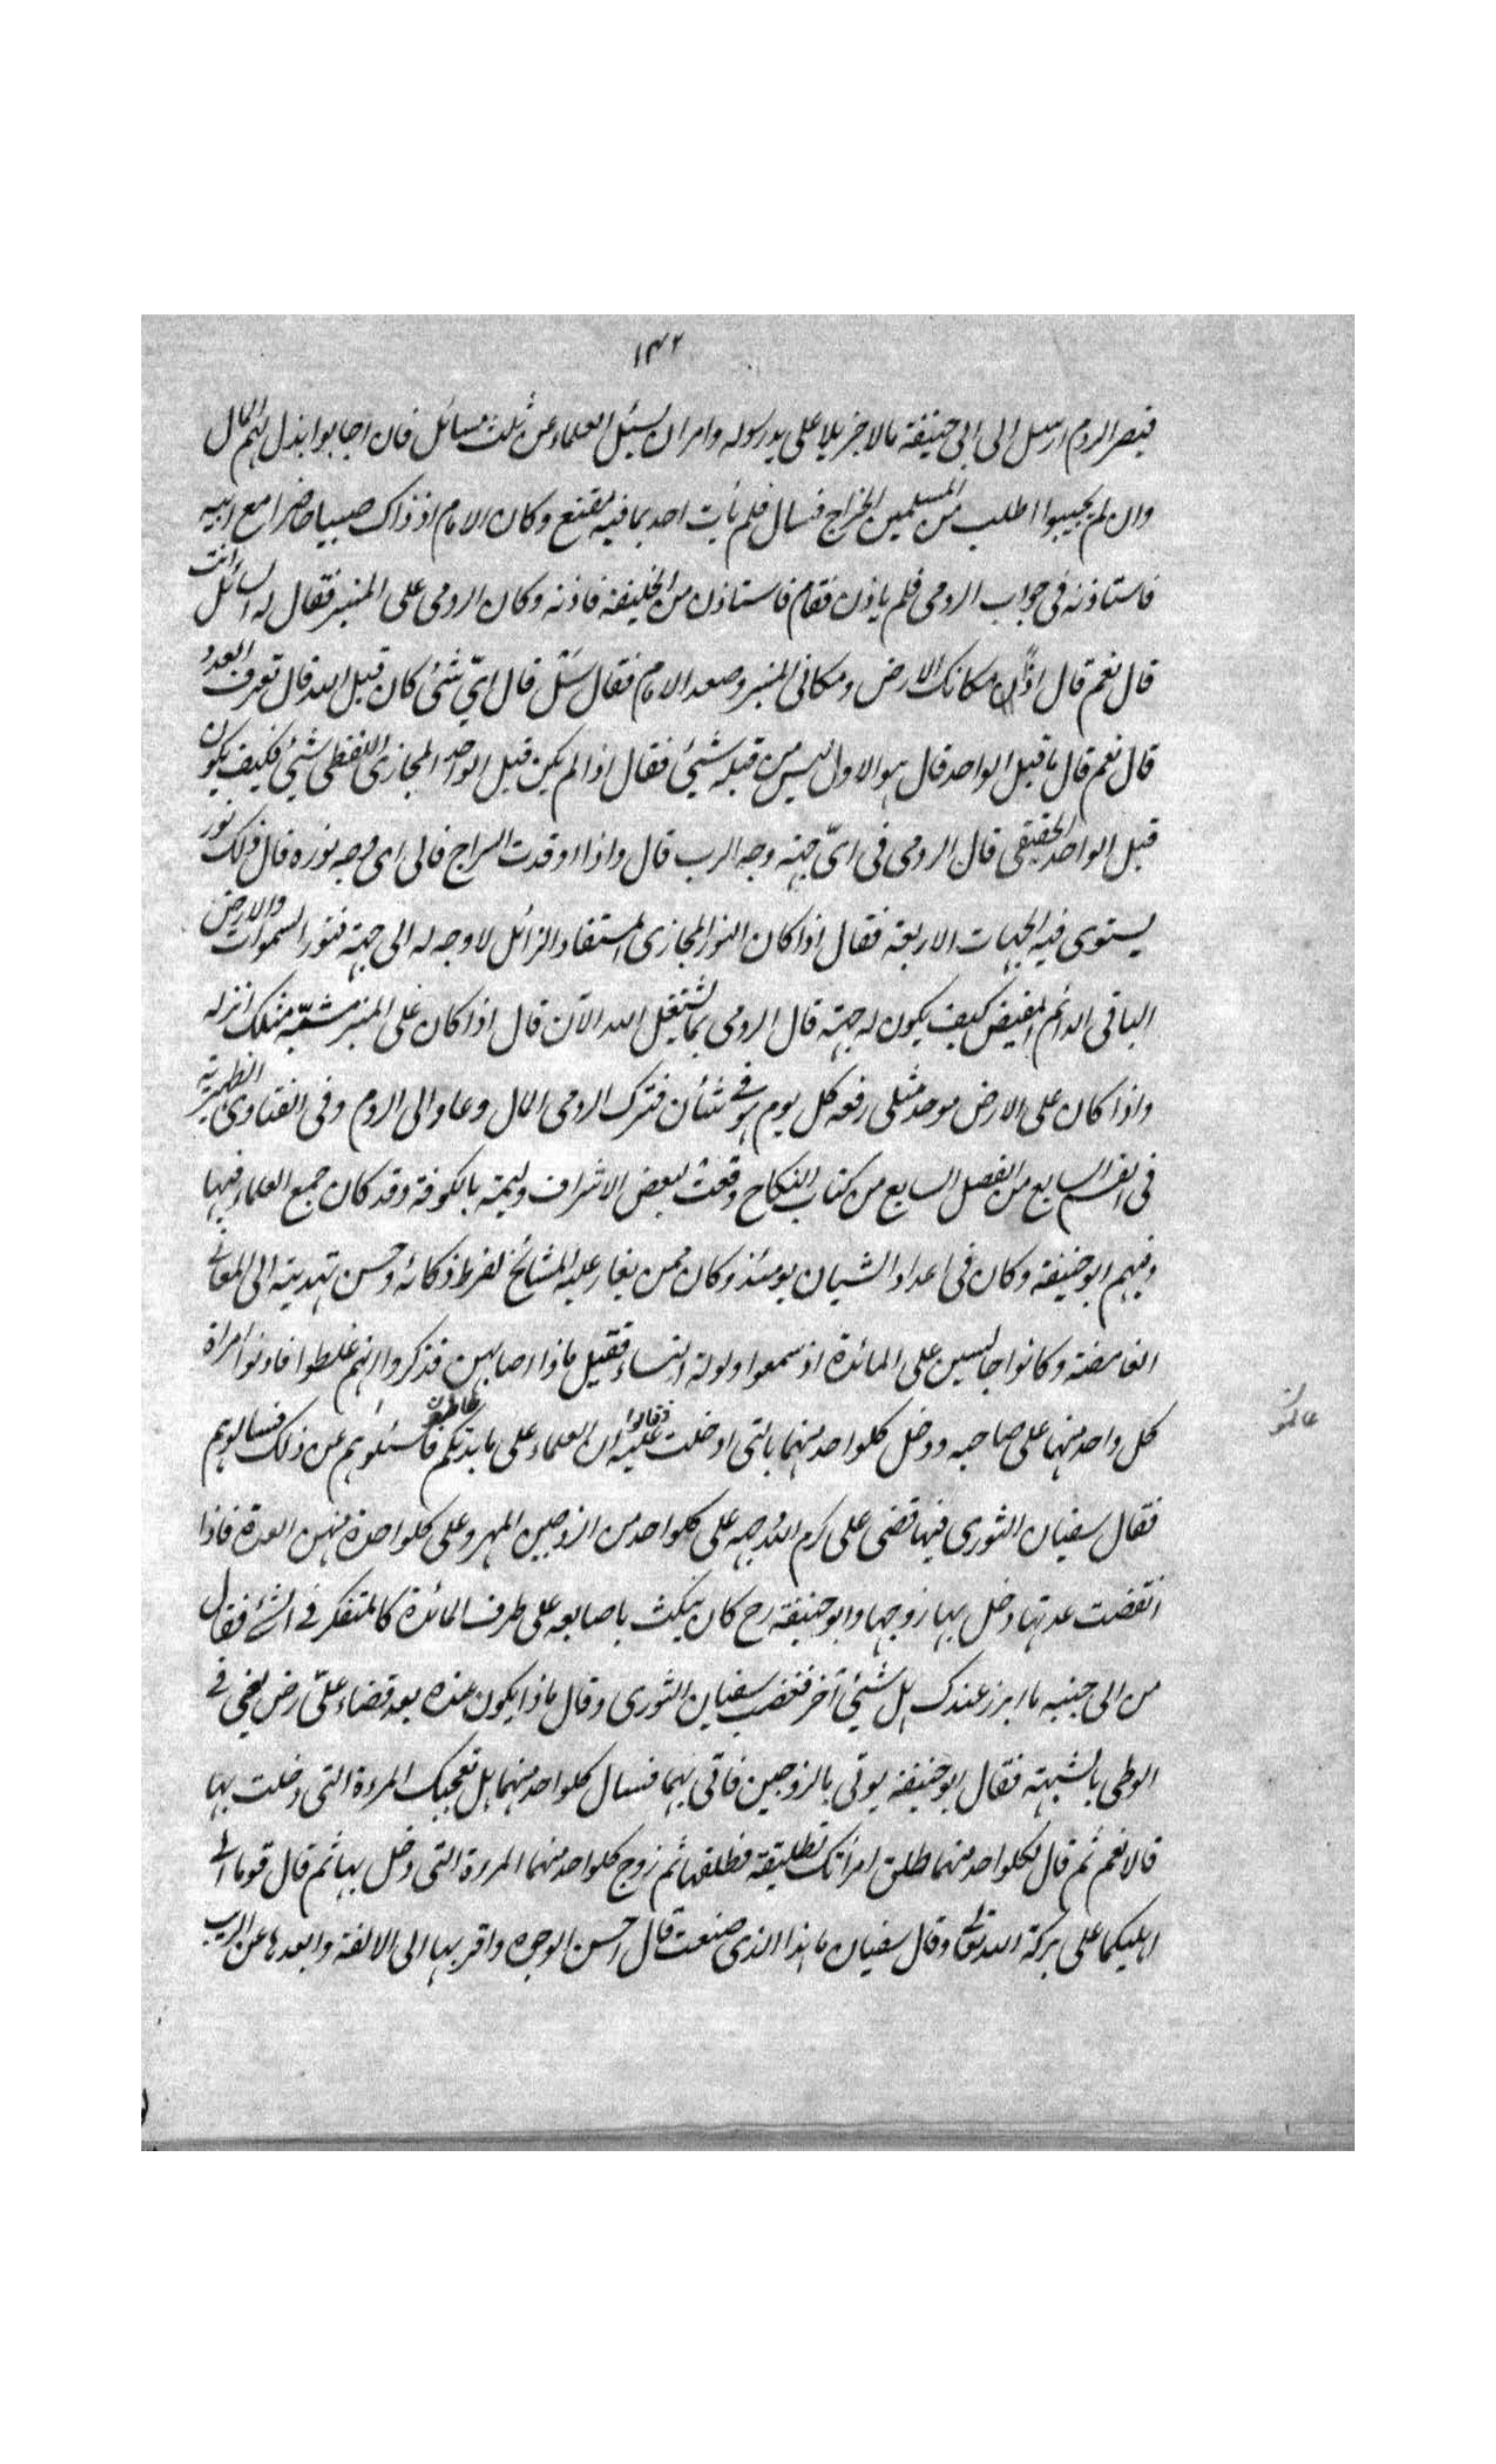 ١٣٢
قيصر الروم ارسل الى ابى حنيفة مالا جزيلا على يد رسوله وامر ان يسئل العلماء عن ثلث مسائل فان اجابوا ابذل لهم المال
وان لم يجيبوا اطلب من المسلمين الخراج فسال فلم يأت احد بما فيه مقنع وكان الامام اذ ذاك صبيا حاضرا مع ابيه
فاستاذنه فى جواب الرومى فلم ياذن فقام فاستاذن من الخليفة فاذنه وكان الرومى على المنبر فقال له اسائل انت
قال نعم قال اذًا مكانك الارض ومكانى المنبر وصعد الامام فقال سئل قال اىّ شئ كان قبل الله قال تعرف العدد
قال نعم قال ما قبل الواحد قال هو الاول ليس من قبله شئ فقال اذا لم يكن قبل الواحد المجازى اللفظى شئ فكيف يكون
قبل الواحد الحقيقى قال الرومى فى اىّ جهة وجه الرب قال واذا اوقدت السراج فالى اى وجه نوره قال ذلك نور
يستوى فيه الجهات الاربعة فقال اذا كان النور المجازى المستفاد الزائل لا وجه له الى جهة فنور السموات والارض
الباقى الدائم المفيض كيف يكون له جهة قال الرومى بما يشتغل الله الآن قال اذا كان على المنبر مشبّه مثلك انزله
واذا كان على الارض موحد مثلى رفعه كل يوم هو فى شأن فترك الرومى المال وعاد الى الروم وفى الفتاوى الظهيرية
فى القسم السابع من الفصل السابع من كتاب النكاح وقعت لبعض الاشراف وليمة بالكوفة وقد كان جمع العلماء فيها
وفيهم ابو حنيفة وكان فى اعداد الشبان يومئذ وكان ممن يغار عليه المشائخ لفرط ذكائه وحسن تهديته الى المعانى
الغامضة وكانوا جالسين على المائدة اذ سمعوا ولولة النساء فقيل ماذا اصابهن فذكروا انهم غلطوا فادخلوا امراة
كل واحد منهما على صاحبه ودخل كلواحد منهما بالتى ادخلت عليه وقالوا ان العلماء على مائدتكم فاسئلوهم عن ذلك فسالوهم
فقال سفيان الثورى فيها قضى على كرم الله وجهه على كلواحد من الزوجين المهر وعلى كلواحدة منهن العدة فاذا
انقضت عدتها دخل بها زوجها وابو حنيفة رح كان ينكث باصابعه على طرف المائدة كالمتفكر فى الشئ فقال
من الى جنبه ما ابرز عندك هل شئ آخر فغضب سفيان الثورى وقال ماذا يكون عنده بعد قضاء علىّ رض يعنى فى
الوطى بالشبهة فقال ابو حنيفة يوتى بالزوجين فاتى بهما فسال كلواحد منهما هل تعجبك المرءة التى دخلت بها
قالا نعم ثم قال لكلواحد منهما طلق امراتك تطليقة فطلقها ثم زوج كلواحد منهما المرءة التى دخل بها ثم قال قوما الى
اهليكما على بركة الله تعالى وقال سفيان ما هذا الذى صنعت قال احسن الوجوه واقربها الى الالفة وابعدها عن الريب